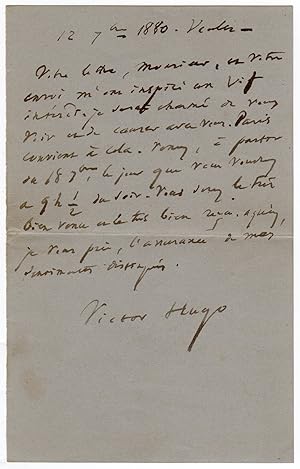 12 7bre 1880 - Veules -
Votre lettre, Monsieur, et votre
envoi m'ont inspiré un vif
intérêt. je serai charmé de vous
voir et de causer avec vous. Paris
convient à cela. Venez, à partir
du 18 7bre, le jour que vous voudrez
à 9h ½ du soir. Vous serez le très
bien venu et le très bien reçu. agréez,
je vous prie, l'assurance de mes
sentiments distingués.
Victor Hugo